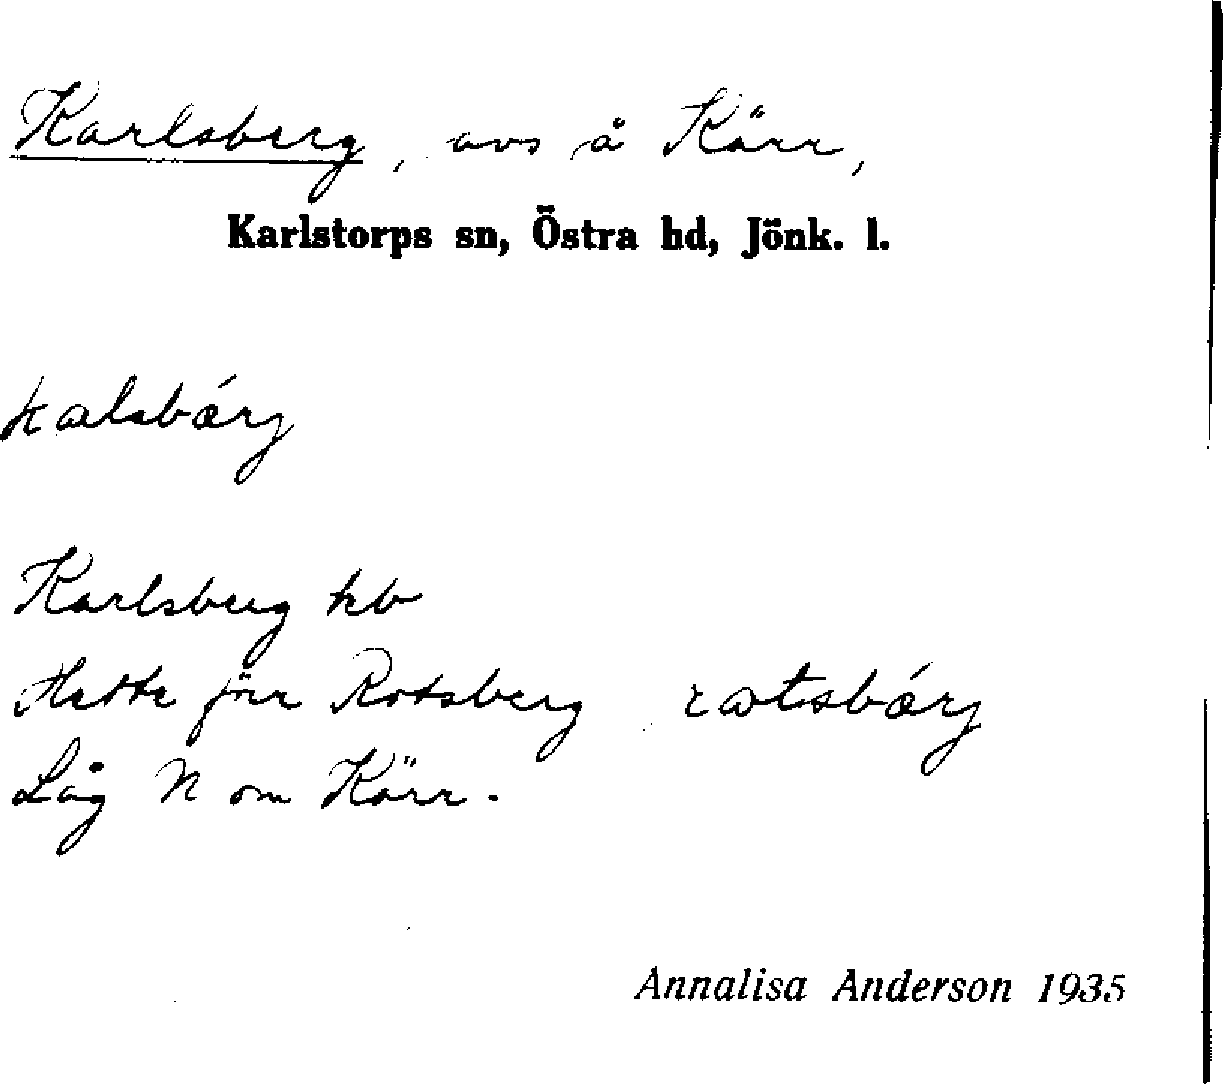 Karlsberg, avs å Kärr,
Karlstorps sn, Östra hd, Jönk. l.
kalsbárj
Karlsberg hb
Hette förr Rotsberg rotsbárj
Låg N om Kärr.
Annalisa Anderson 1935